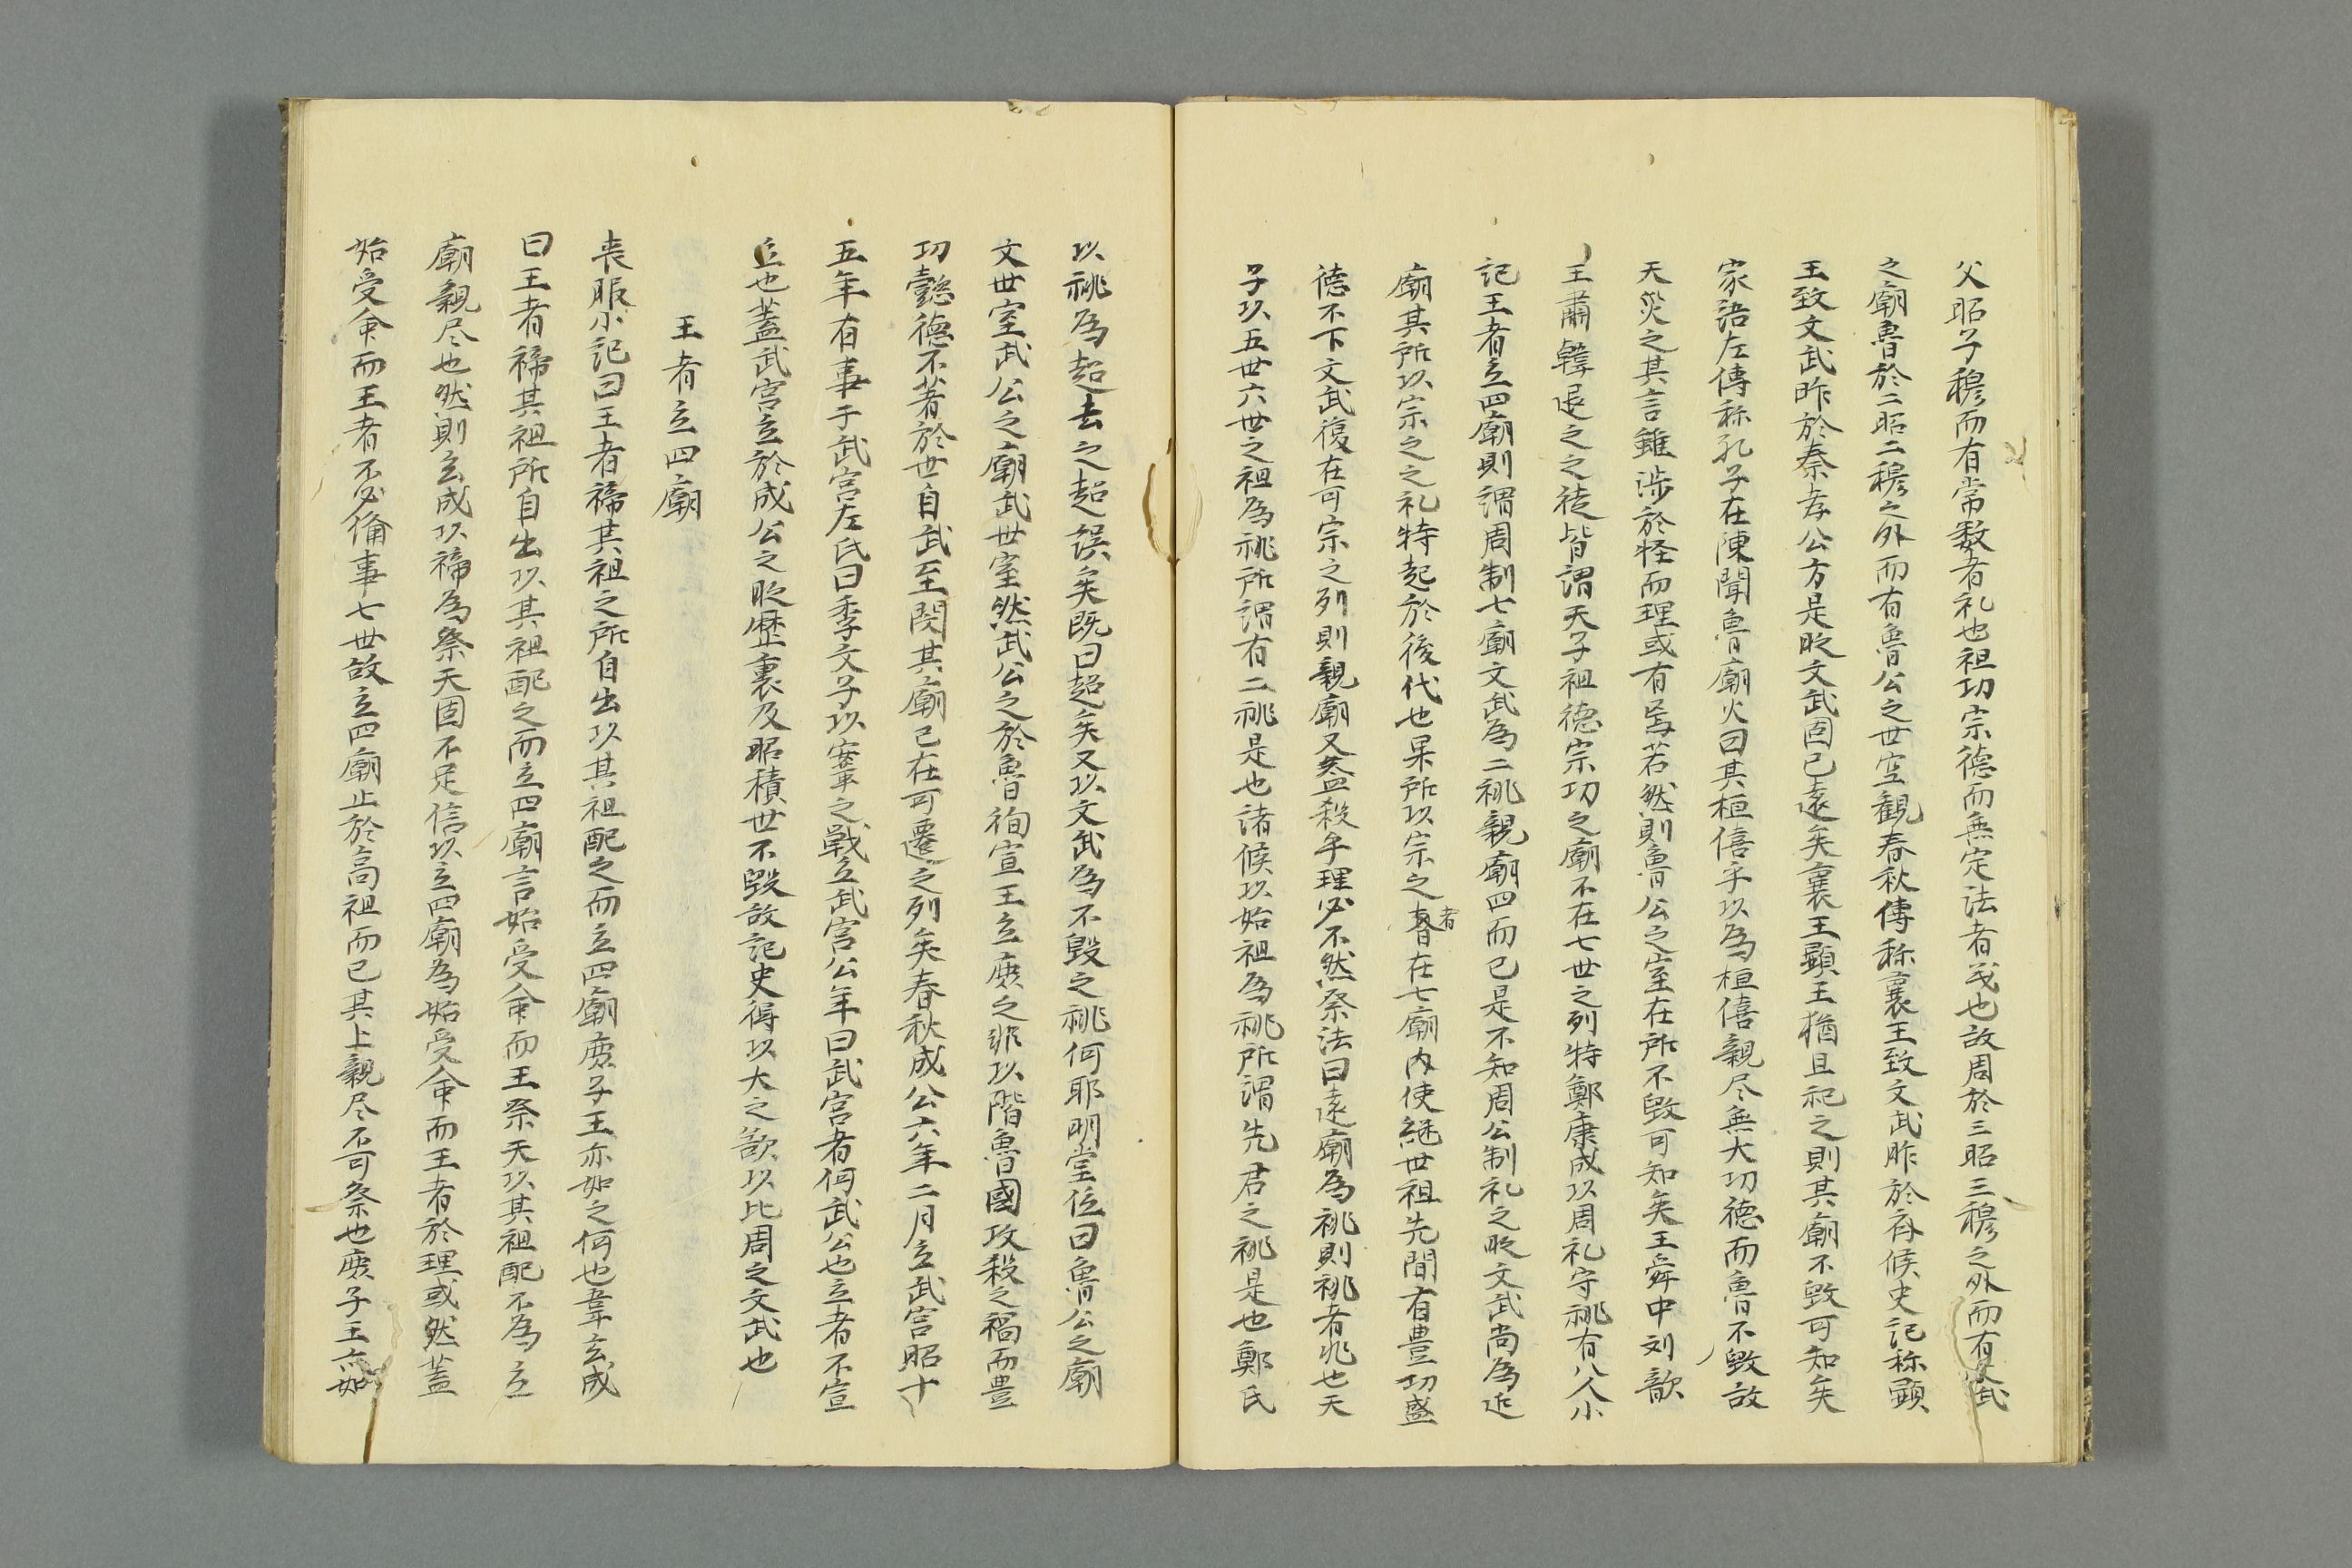 父昭子穆而有常数者礼也祖功宗德而無定法者義也故周於三昭三穆之外而有文武
之廟魯於二昭二穆之外而有魯公之世室観春秋傳称襄王致文武胙於斉侯史記称顕
王致文武胙於秦孝公方是时文武固已遠矣襄王顕王猶且祀之則其廟不毀可知矣
家語左傳称孔子在陳聞魯廟火曰其桓僖乎以為桓僖親尽無大功德而魯不毀故
天災之其言雖渉於怪而理或有焉若然則魯公之室在所不毀可知矣王舜中刘歆
王肅韓退之之徒皆謂天子祖德宗功之廟不在七世之列特鄭康成以周礼守祧有八人小
記王者立四廟則謂周制七廟文武為二祧親廟四而已是不知周公制礼之时文武尚為近
廟其所以宗之之礼特起於後代也果所以宗之者在七廟内使継世祖先間有豊功盛
德不下文武復在可宗之列則親廟又益殺乎理必不然祭法曰遠廟為祧則祧者兆也天
子以五世六世之祖為祧所謂有二祧是也諸候以始祖為祧所謂先君之祧是也鄭氏
以祧為超去之超誤矣既曰超矣又以文武為不毀之祧何耶明堂位曰魯公之廟
文世室武公之廟武世室然武公之於魯徇宣王立庶之非以階魯國攻殺之禍而豊
功懿德不著於世自武至閔其廟已在可遷之列矣春秋成公六年二月立武宮昭十
五年有事于武宮左氏曰季文子以鞌之戦立武宮公羊曰武宮者何武公也立者不宣
立也蓋武宮立於成公之时歴襄及昭積世不毀故記史得以大之欲以比周之文武也
王者立四廟
喪服小記曰王者禘其祖之所自出以其祖配之而立四廟庶子王亦如之何也韋玄成
曰王者禘其祖所自出以其祖配之而立四廟言始受命而王祭天以其祖配不為立
廟親尽也然則玄成以禘為祭天固不足信以立四廟為始受命而王者於理或然蓋
始受命而王者不必備事七世故立四廟止於高祖而已其上親尽不可祭也庶子王亦如